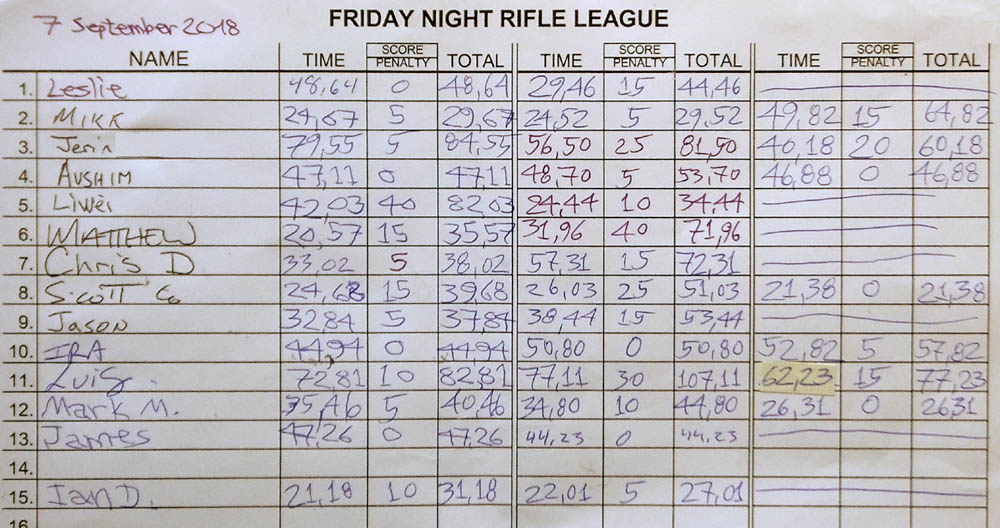 7 September 2018
FRIDAY NIGHT RIFLE LEAGUE
NAME TIME SCORE PENALTY TOTAL TIME SCORE PENALTY TOTAL TIME SCORE PENALTY TOTAL
1. Leslie 48,64 0 48,64 29,46 15 44,46
2. MIKK 24,67 5 29,67 24,52 5 29,52 49,82 15 64,82
3. Jerin 79,55 5 84,55 56,50 25 81,50 40,18 20 60,18
4. AVSHIM 47,11 0 47,11 48,70 5 53,70 46,88 0 46,88
5. Liwei 42,03 40 82,03 24,44 10 34,44
6. MATTHEW 20,57 15 35,57 31,96 40 71,96
7. Chris D 33,02 5 38,02 57,31 15 72,31
8. Scott Co 24,68 15 39,68 26,03 25 51,03 21,38 0 21,38
9. Jason 32,84 5 37,84 38,44 15 53,44
10. IRA 44,94 0 44,94 50,80 0 50,80 52,82 5 57,82
11. Luis. 72,81 10 82,81 77,11 30 107,11 62,23 15 77,23
12. Mark M. 35,46 5 40,46 34,80 10 44,80 26,31 0 26,31
13. James 47,26 0 47,26 44,23 0 44,23
14.
15. Ian D. 21,18 10 31,18 22,01 5 27,01
16.